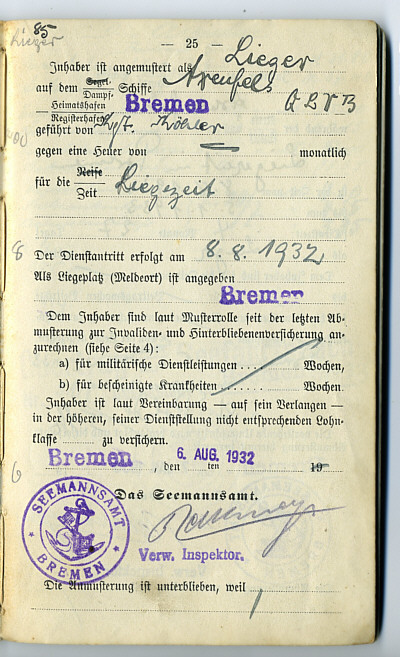 85
Lieger
— 25 —
Inhaber ist angemustert als Lieger
auf dem Segel- Dampf- Schiffe Arenfels
Heimatshafen Registerhafen Bremen QLVB
geführt von Kpt. Köhler
gegen eine Heuer von monatlich
für die Reise Zeit Liegezeit
8 Der Dienstantritt erfolgt am 8.8.1932
Als Liegeplatz (Meldeort) ist angegeben
Bremen
Dem Inhaber sind laut Musterrolle seit der letzten Ab-
musterung zur Invaliden- und Hinterbliebenenversicherung an-
zurechnen (siehe Seite 4):
a) für militärische Dienstleistungen .... Wochen,
b) für bescheinigte Krankheiten ........ Wochen.
Inhaber ist laut Vereinbarung — auf sein Verlangen —
in der höheren, seiner Dienststellung nicht entsprechenden Lohn-
klasse zu versichern.
Bremen, den 6. AUG. 1932 ten 19
Das Seemannsamt.
SEEMANNSAMT BREMEN
Verw. Inspektor.
Die Anmusterung ist unterblieben, weil